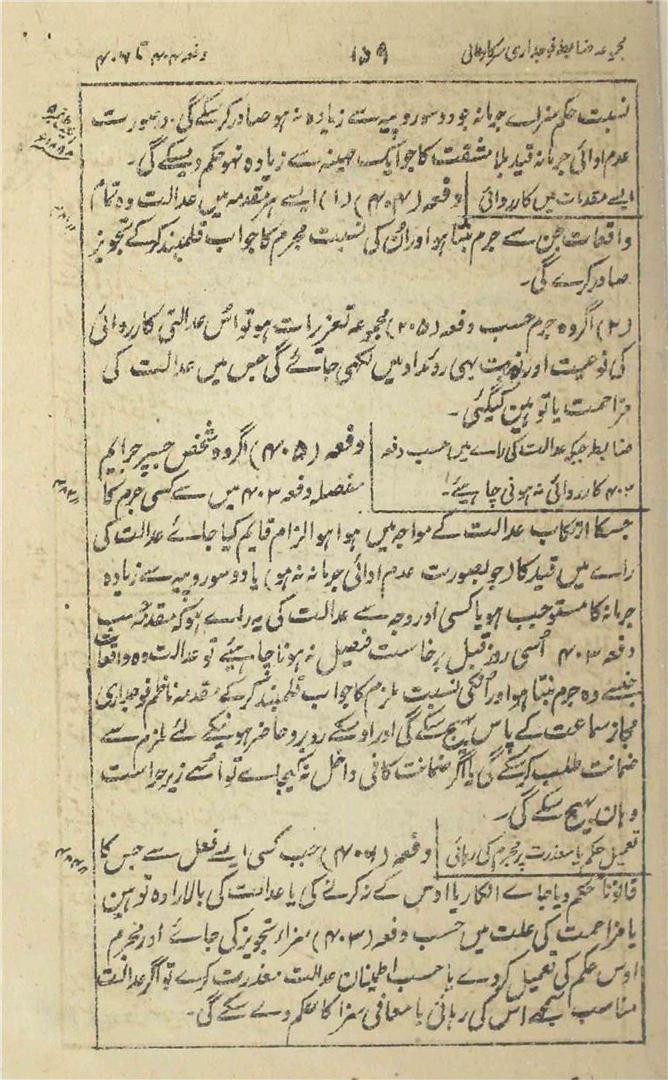 مجموعہ ضابطہ فوجداری سرکارعالی
۱۵۹
دفعہ ۴۰۴ تا ۴۰۶
نسبت حکم سزاے جرمانہ جو دو سو روپیہ سے زیادہ نہ ہو صادر کرسکے گی۔ درصورت
عدم ادائی جرمانہ قید بلا مشقت کا جو ایک مہینہ سے زیادہ نہو حکم دیسکے گی۔
ایسے مقدمات میں کارروائی
دفعہ (۴۰۴) (۱) ایسے ہر مقدمہ میں عدالت وہ تمام
واقعات جن سے جرم بنتا ہو اور اُن کی نسبت مجرم کا جواب قلمبند کرکے تجویز
صادر کرے گی۔
(۲) اگر وہ جرم حسب دفعہ (۲۰۵) مجموعہ تعزیرات ہو تو اُس عدالتی کارروائی
کی نوعیت اور نوبت بھی روئداد میں لکھی جائے گی جس میں عدالت کی
مزاحمت یا توہین کیگئی۔
ضابطہ جبکہ عدالت کی راے میں حسب دفعہ
۴۰۳ کارروائی نہ ہونی چاہیئے۔
دفعہ (۴۰۵) اگر وہ شخص جسپر جرایم
مفصلہ دفعہ ۴۰۳ میں سے کسی جرم کا
جسکا ارتکاب عدالت کے مواجہ میں ہوا ہو الزام قایم کیا جاے عدالت کی
راے میں قید کا (جو بصورت عدم ادائی جرمانہ نہ ہو) یا دو سو روپیہ سے زیادہ
جرمانہ کا مستوجب ہو یا کسی اور وجہ سے عدالت کی یہ راے ہو کہ مقدمہ حسب
دفعہ ۴۰۳ اُسی روز قبل برخاست فیصل نہ ہونا چاہیئے تو عدالت وہ واقعات
جنسے وہ جرم بنتا ہو اور اُنکی نسبت ملزم کا جواب قلمبند کرکے مقدمہ ناظم فوجداری
مجاز سماعت کے پاس بھیج سکے گی اور اوسکے روبرو حاضر ہونیکے لئے ملزم سے
ضمانت طلب کرسکے گی یا اگر ضمانت کافی داخل نہ کیجاے تو اُسے زیر حراست
وہاں بھیج سکے گی۔
تعمیل حکم یا معذرت پر مجرم کی رہائی
دفعہ (۴۰۶) جب کسی ایسے فعل سے جس کا
قانوناً حکم دیا جاے انکار یا اوس کے نہ کرنے کی یا عدالت کی بالارادہ توہین
یا مزاحمت کی علت میں حسب دفعہ (۴۰۳) سزا تجویز کی جائے اور مجرم
اوس حکم کی تعمیل کردے یا حسب اطمینان عدالت معذرت کرے تو اگر عدالت
مناسب سمجھے اس کی رہائی یا معافی سزا کا حکم دے سکے گی۔